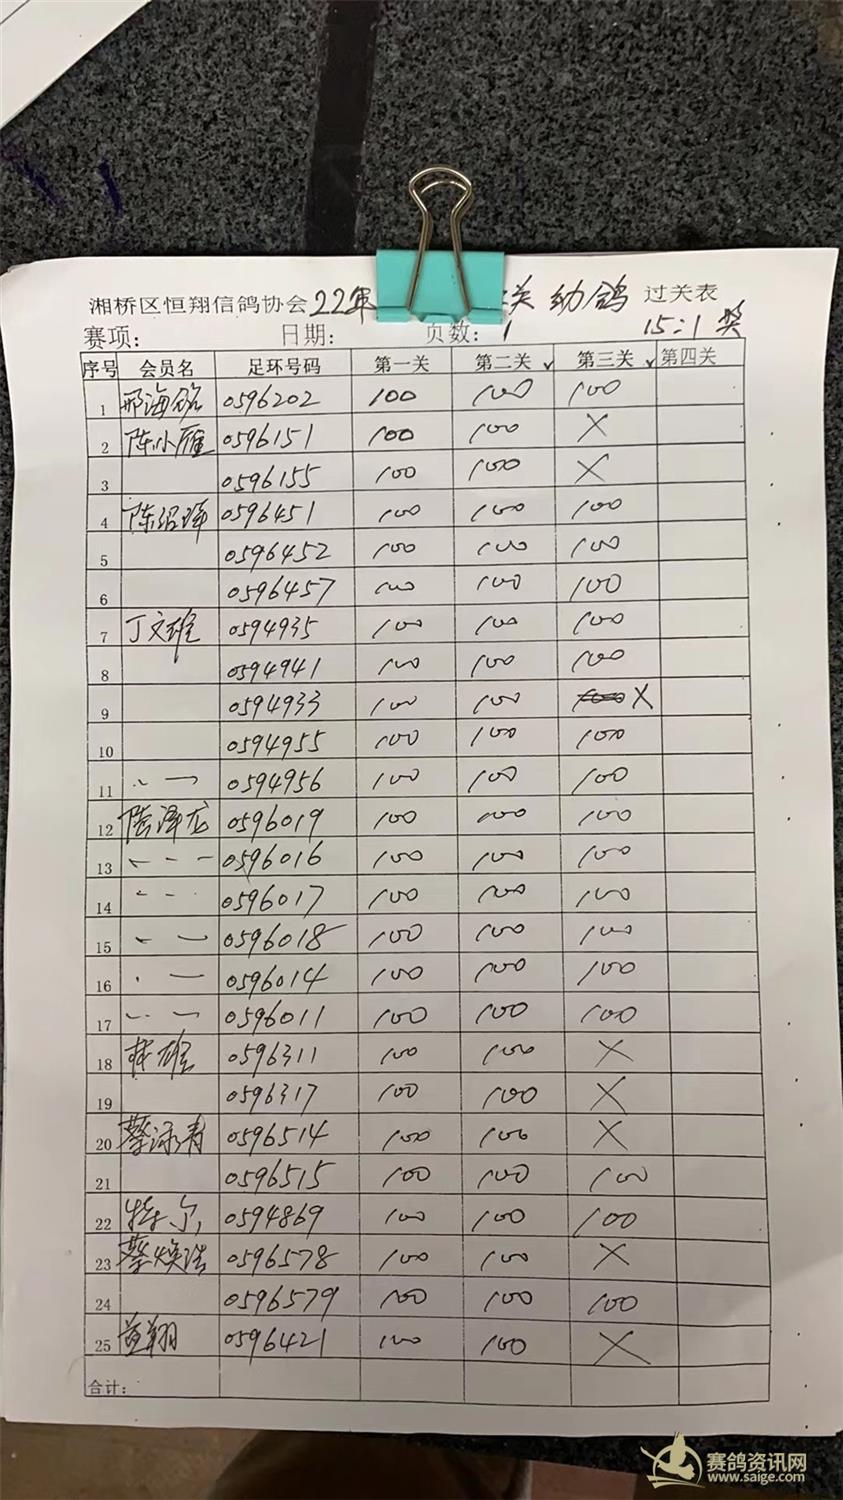 湘桥区恒翔信鸽协会22年 关 幼鸽 过关表
赛项: 日期: 页数: 1 15:1 奖
序号 会员名 足环号码 第一关 第二关 √ 第三关 √ 第四关
1 邢海铭 0596202 100 100 100
2 陈小雁 0596151 100 100 X
3 0596155 100 100 X
4 陈绍 0596451 100 100 100
5 0596452 100 100 100
6 0596457 100 100 100
7 丁文雄 0594935 100 100 100
8 0594941 100 100 100
9 0594933 100 100 X
10 0594955 100 100 100
11 0594956 100 100 100
12 陈泽龙 0596019 100 100 100
13 0596016 100 100 100
14 0596017 100 100 100
15 0596018 100 100 100
16 0596014 100 100 100
17 0596011 100 100 100
18 林雄 0596311 100 100 X
19 0596317 100 100 X
20 蔡泳青 0596514 100 100 X
21 0596515 100 100 100
22 0594869 100 100 100
23 蔡焕浩 0596578 100 100 X
24 0596579 100 100 100
25 黄翔 0596421 100 100 X
合计:
赛鸽资讯网
www.saige.com